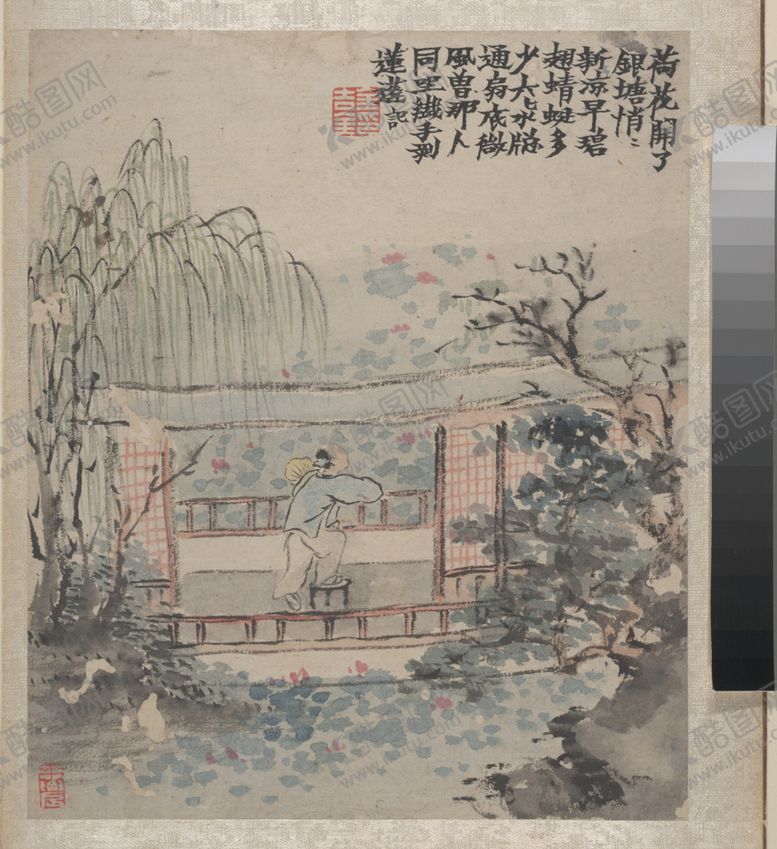 荷花開了
銀塘悄〻
新涼早碧
翅蜻蜓多
少六〻水窗
通扇底微
風曾那人
同坐纖手剝
蓮蓬記
酷图网
www.ikutu.com